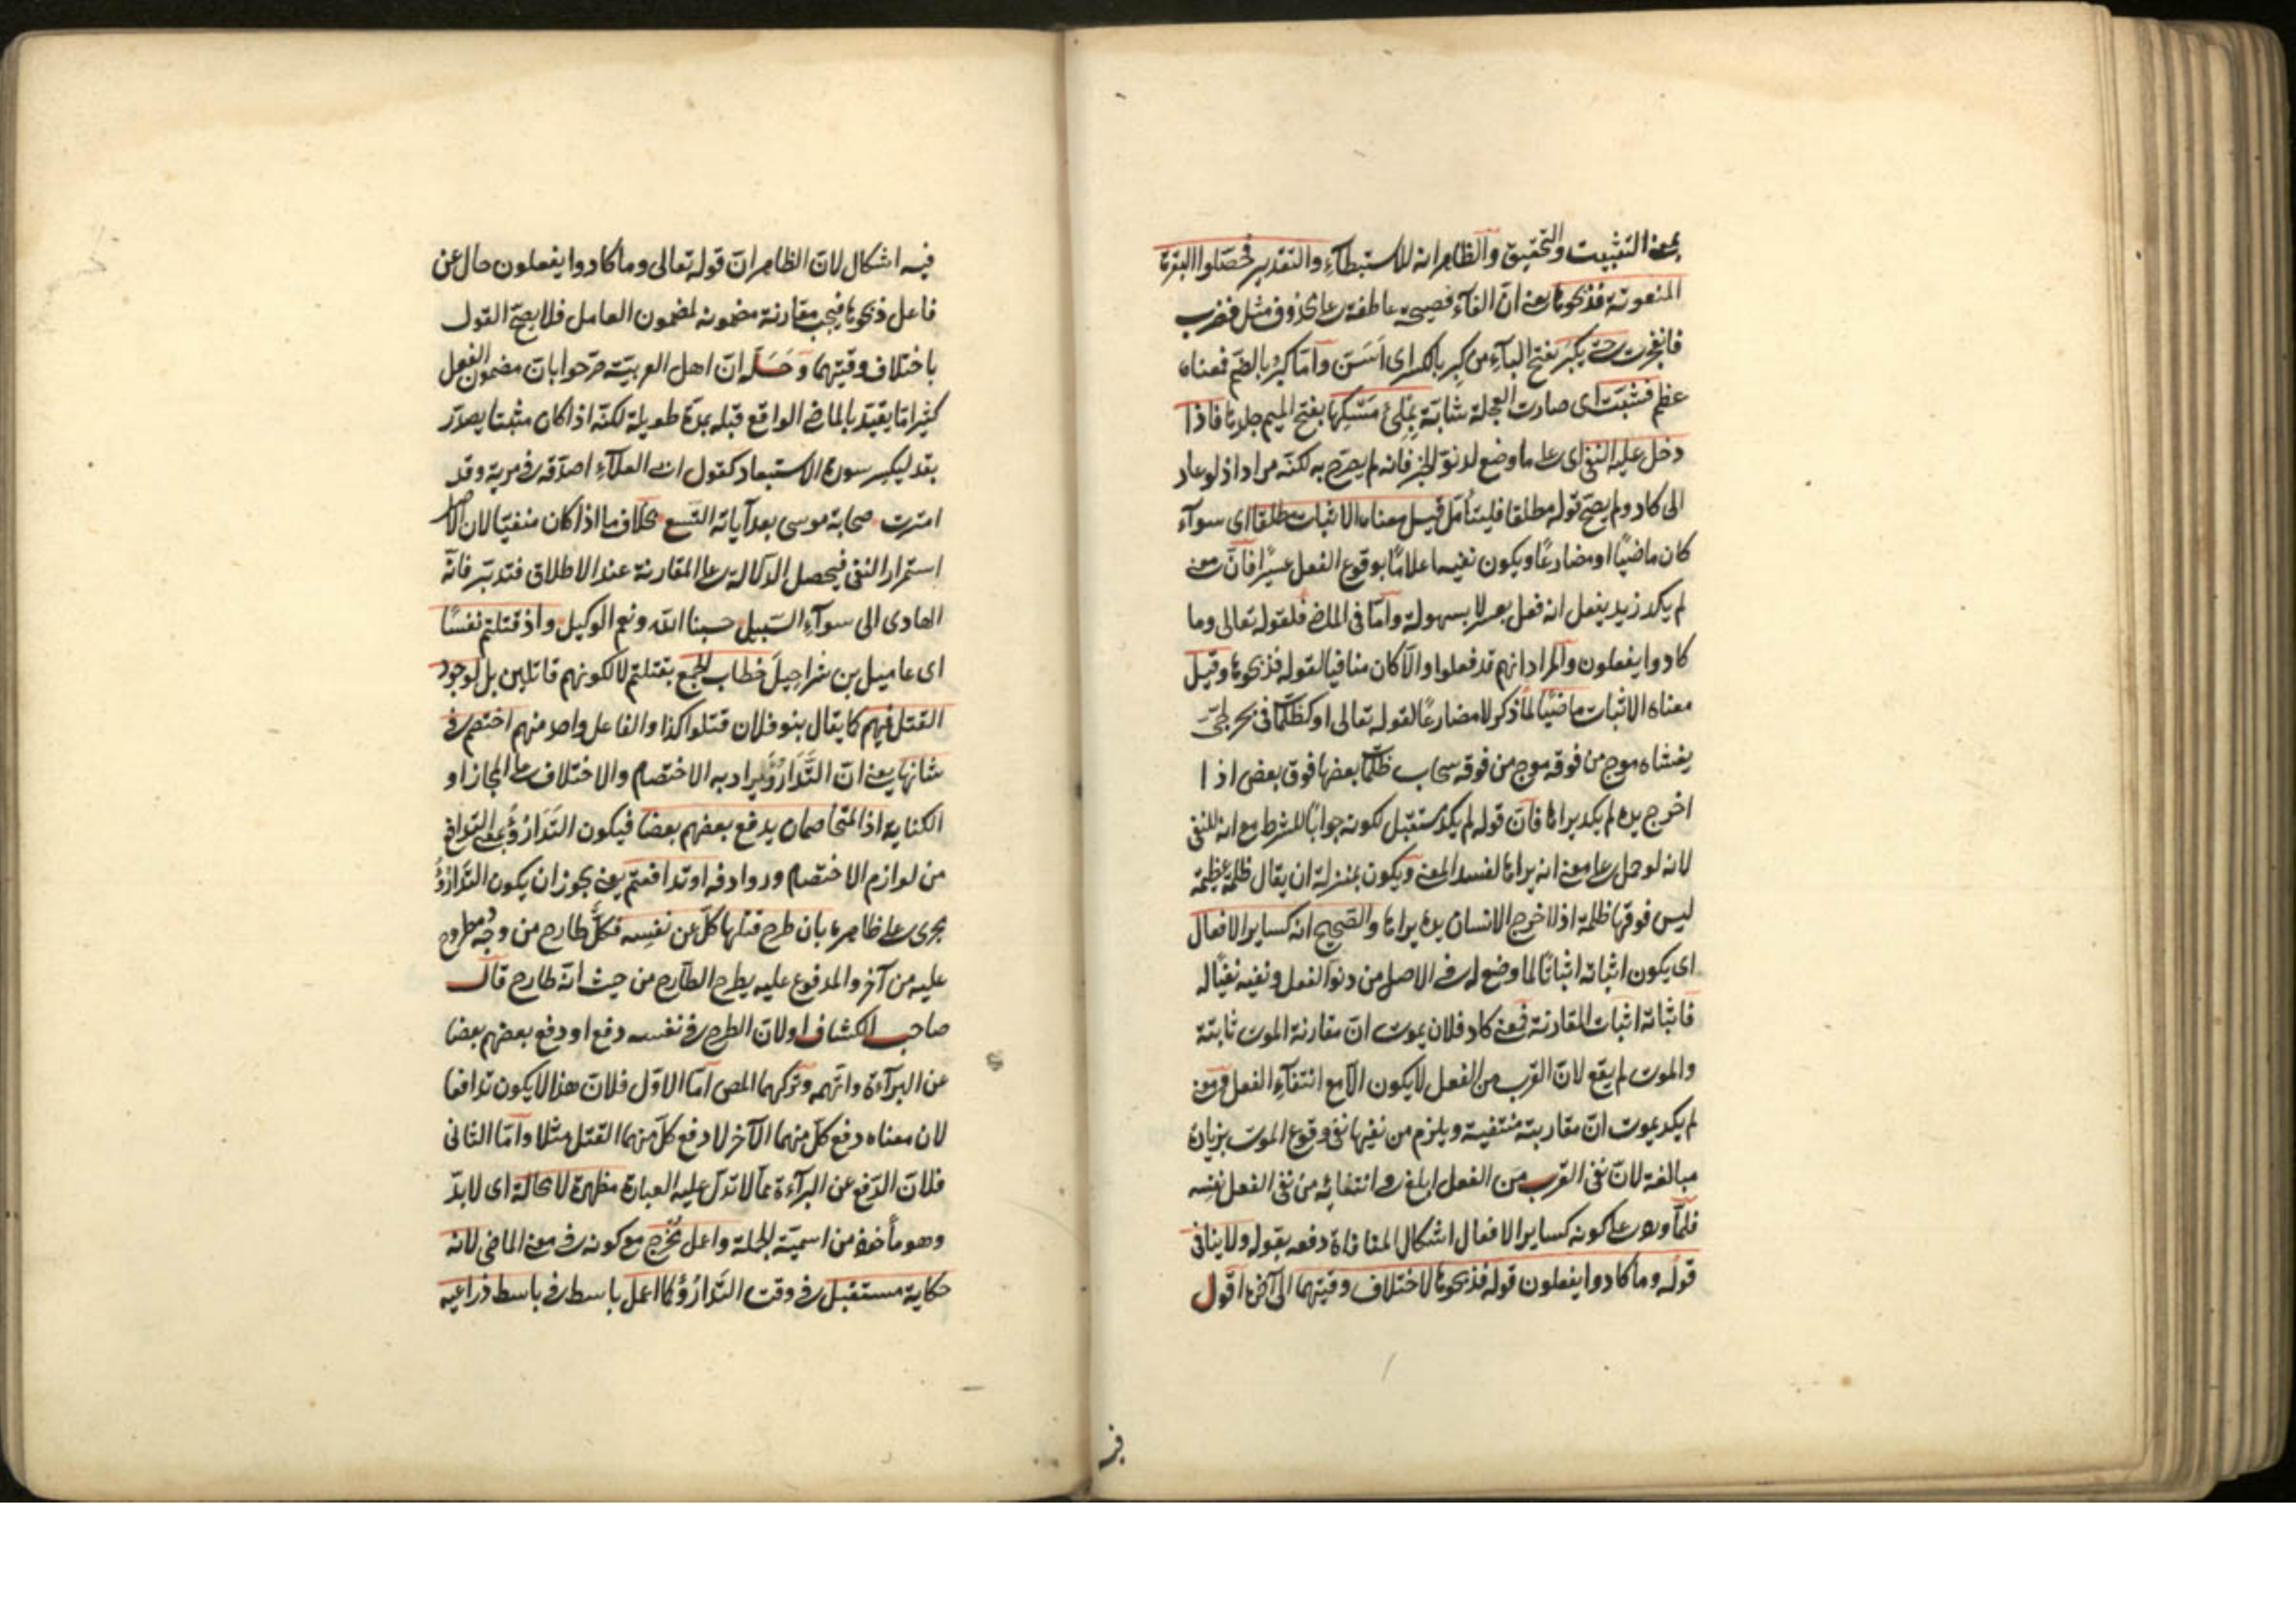 بمعنى التثبيت والتحقيق والظاهر انه للاستبطآء والتقدير فحصّلوا البقرة
المنعوتة فذبحوها يعنى انّ الفآء فصيحة عاطفة على محذوف مثل فضرب
فانفجرت حتى يكبر بفتح البآء من كبر بالكسر اى اَسَنّ وامّا كبُر بالضمّ فمعناه
عظم فشبّت اى صارت العجلة شابّة بملئ مَسْكها بفتح الميم جلدها فاذا
دخل عليه النفى اى على ما وضع لدنوّ الخبر فانه لم يصرّح به لكنّه مراد اذ لو عاد
الى كاد ولم يصحّ قوله مطلقا فليتأمل قيل معناه الاثبات مطلقا اى سوآء
كان ماضيًا او مضارعًا ويكون نفيه اعلامًا بوقوع الفعل عسيرًا فانّ معنى
لم يكد زيد يفعل انه فعل بعسر لا بسهولة وامّا فى الماضى فلقوله تعالى وما
كادوا يفعلون والمراد انهم قد فعلوا والّا كان منافيا لقوله فذبحوها وقيل
معناه الاثبات ماضيًا لما ذكر لا مضارعًا لقوله تعالى او كظلمات فى بحر لجىّ
يغشاه موج من فوقه موج من فوقه سحاب ظلمات بعضها فوق بعض اذا
اخرج يده لم يكد يراها فانّ قوله لم يكد مستقبل لكونه جوابًا للشرط مع انه للنفى
لانه لو حمل على معنى انه يراها لفسد المعنى ويكون بمنزلة ان يقال ظلمة عظيمة
ليس فوقها ظلمة اذا اخرج الانسان يده يراها والصحيح انه كساير الافعال
اى يكون اثباته اثباتًا لما وضع له فى الاصل من دنوّ الفعل ونفيه نفيًا له
فاثباته اثبات المقارنة فمعنى كاد فلان يموت انّ مقارنة الموت ثابتة
والموت لم يقع لانّ القرب من الفعل لا يكون الّا مع انتفآء الفعل ومعنى
لم يكد يموت انّ مقاربته منتفية ويلزم من نفيها نفى وقوع الموت بزيادة
مبالغة لانّ نفى القرب من الفعل ابلغ فى انتفائه من نفى الفعل نفسه
فلمّا ورد على كونه كساير الافعال اشكال المنافاة دفعه بقوله ولا ينافى
قوله وما كادوا يفعلون قوله فذبحوها لاختلاف وقتيهما الى آخره اقول
فيه
فيه اشكال لانّ الظاهر انّ قوله تعالى وما كادوا يفعلون حال عن
فاعل ذبحوها فيجب مقارنة مضمونه لمضمون العامل فلا يصحّ القول
باختلاف وقتيهما وحَلّه انّ اهل العربيّة صرّحوا بانّ مضمون الفعل
كثيرا ما يقيّد بالماضى الواقع قبله بمدّة طويلة لكنّه اذا كان مثبتا يصدّر
بقد ليكسر سورة الاستبعاد كقول ابى العلآء اصدّقه فى مرية وقد
امترت صحابة موسى بعد آياته التسع بخلاف ما اذا كان منفيّا لان الاصل
استمرار النفى فيحصل الدلالة على المقارنة عند الاطلاق فتدبّر فانّه
الهادى الى سوآء السّبيل حسبنا الله ونعم الوكيل واذ قتلتم نفسًا
اى عاميل بن شراحيل خطاب للجمع بقتلتم لا لكونهم قاتلين بل لوجود
القتل فيهم كما يقال بنو فلان قتلوا كذا والفاعل واحد منهم اختصم فى
شانها يعنى انّ التّدارُؤ يراد به الاختصام والاختلاف على المجاز او
الكناية اذ المتخاصمان يدفع بعضهم بعضا فيكون التدارؤ بمعنى التدافع
من لوازم الاختصام وروادفه او تدافعتم يعنى يجوز ان يكون التّدارُؤُ
مجرى على ظاهره بان طرح قتلها كلّ عن نفسه فكلّ طارح من وجه مطروح
عليه من آخر والمدفوع عليه يطرح الطّارح من حيث انّه طارح قال
صاحب الكشاف اولانّ الطرح فى نفسه دفع او دفع بعضهم بعضا
عن البرآءة واتّهمه وتركهما المص امّا الاوّل فلانّ هذا لا يكون تدافعا
لان معناه دفع كلّ منهما الآخر لا دفع كلّ منهما القتل مثلا وامّا الثانى
فلانّ الدّفع عن البرآءة ممّا لا تدلّ عليه العبارة مظهره لا محالة اى لا بدّ
وهو مأخوذ من اسميّة الجملة واعمل مُخْرج مع كونه فى معنى الماضى لانه
حكاية مستقبل فى وقت التّدارُؤ كما اعمل باسط فى باسط ذراعيه